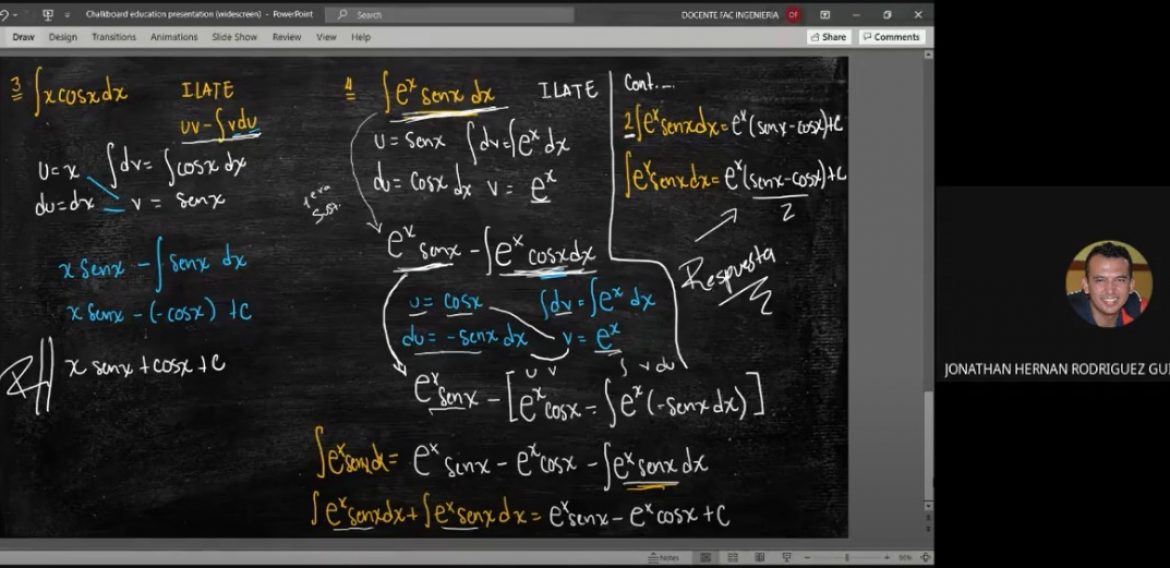 Chalkboard education presentation (widescreen) - PowerPoint
Search
DOCENTE FAC INGENIERIA
DF
Draw Design Transitions Animations Slide Show Review View Help
Share
Comments
3 ∫xcosxdx
ILATE
uv-∫vdu
u=x ∫dv=∫cosx dx
du=dx v= senx
x senx - ∫senx dx
x senx - (-cosx) +C
R// x senx+cosx+C
4 ∫e^x senx dx
ILATE
u= senx ∫dv=∫e^x dx
du= cosx dx v= e^x
e^x senx - ∫e^x cosxdx
u= cosx ∫dv=∫e^x dx
du= -senx dx v= e^x
u v ∫vdu
e^x senx - [e^x cosx - ∫e^x(-senx dx)]
∫e^x senxdx= e^x senx - e^x cosx - ∫e^x senx dx
∫e^x senxdx+∫e^x senxdx= e^x senx - e^x cosx+C
Cont....
2∫e^x senxdx=e^x(senx-cosx)+C
∫e^x senxdx=e^x(senx-cosx)+C
2
Respuesta
Notes
96%
JONATHAN HERNAN RODRIGUEZ GUI